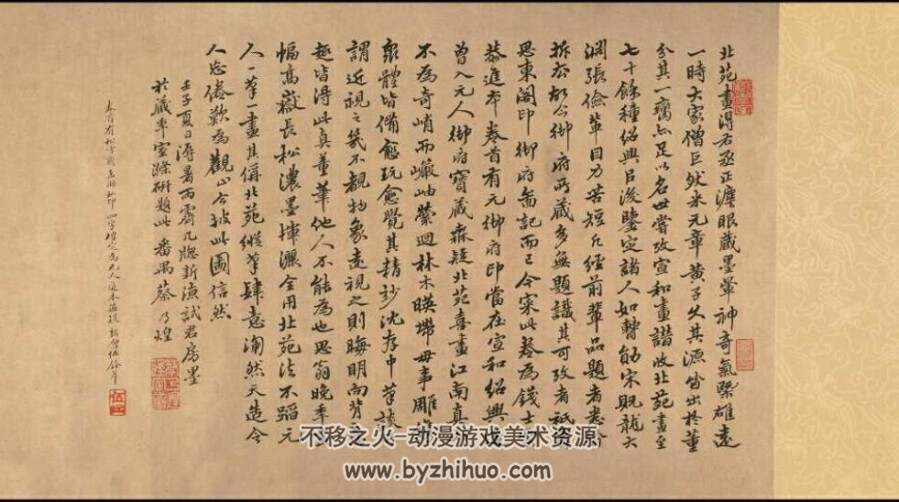 北苑畫得右丞正瀍眼藏墨暈神奇氣槩雄遠
一時大家僧巨然米元章黃子久其源皆出於董
分其一臠亦足以名世嘗攷宣和畫譜收北苑畫至
七十餘種紹興已後鑒定諸人如
宋旣龍大
淵張儉輩目力苦短凡經前輩品題者悉令
拆去故今御府所藏多無題識其可攷者祗
思東閣印御府圖記而已今寀此卷為錢士
恭進本卷首有元御府印當在宣和紹興
曾入元人御府寶藏
北苑喜畫江南真
不為奇峭而巖岫縈迴林木暎
毋事雕
眾體皆備愈玩愈覺其精妙沈存中筆談
謂近視之幾不類物象遠視之則晦明向背
趣皆得此真董筆他人不能為也思翁晚年
幅高嶽長松濃墨揮灑全用北苑法不蹈元
人一筆一畫其倣北苑縱筆肆意淘然天造令
人忘倦歎為觀止今披此圖信然
壬子夏日溽暑雨霽几牕新滌試君房墨
於
室滌研題此 番禺蔡乃煌
不移之火-动漫游戏美术资源
www.byzhihuo.com